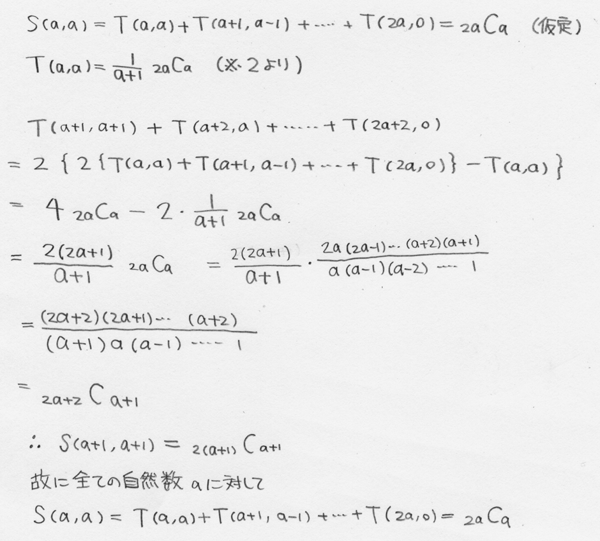 S(a,a) = T(a,a)+T(a+1,a-1)+‥‥+T(2a,0) = 2aCa (仮定)
T(a,a) = 1/(a+1) 2aCa (※2より)
T(a+1,a+1) + T(a+2,a) +‥‥‥+ T(2a+2,0)
= 2 { 2{T(a,a)+T(a+1,a-1)+‥‥+T(2a,0)} - T(a,a) }
= 4 2aCa - 2・1/(a+1) 2aCa
= 2(2a+1)/(a+1) 2aCa = 2(2a+1)/(a+1) ・ 2a(2a-1)‥‥(a+2)(a+1)/a(a-1)(a-2)‥‥1
= (2a+2)(2a+1)‥‥(a+2)/(a+1)a(a-1)‥‥‥1
= 2a+2 C a+1
∴ S(a+1,a+1) = 2(a+1) C a+1
故に全ての自然数aに対して
S(a,a) = T(a,a)+T(a+1,a-1)+‥‥+T(2a,0) = 2aCa